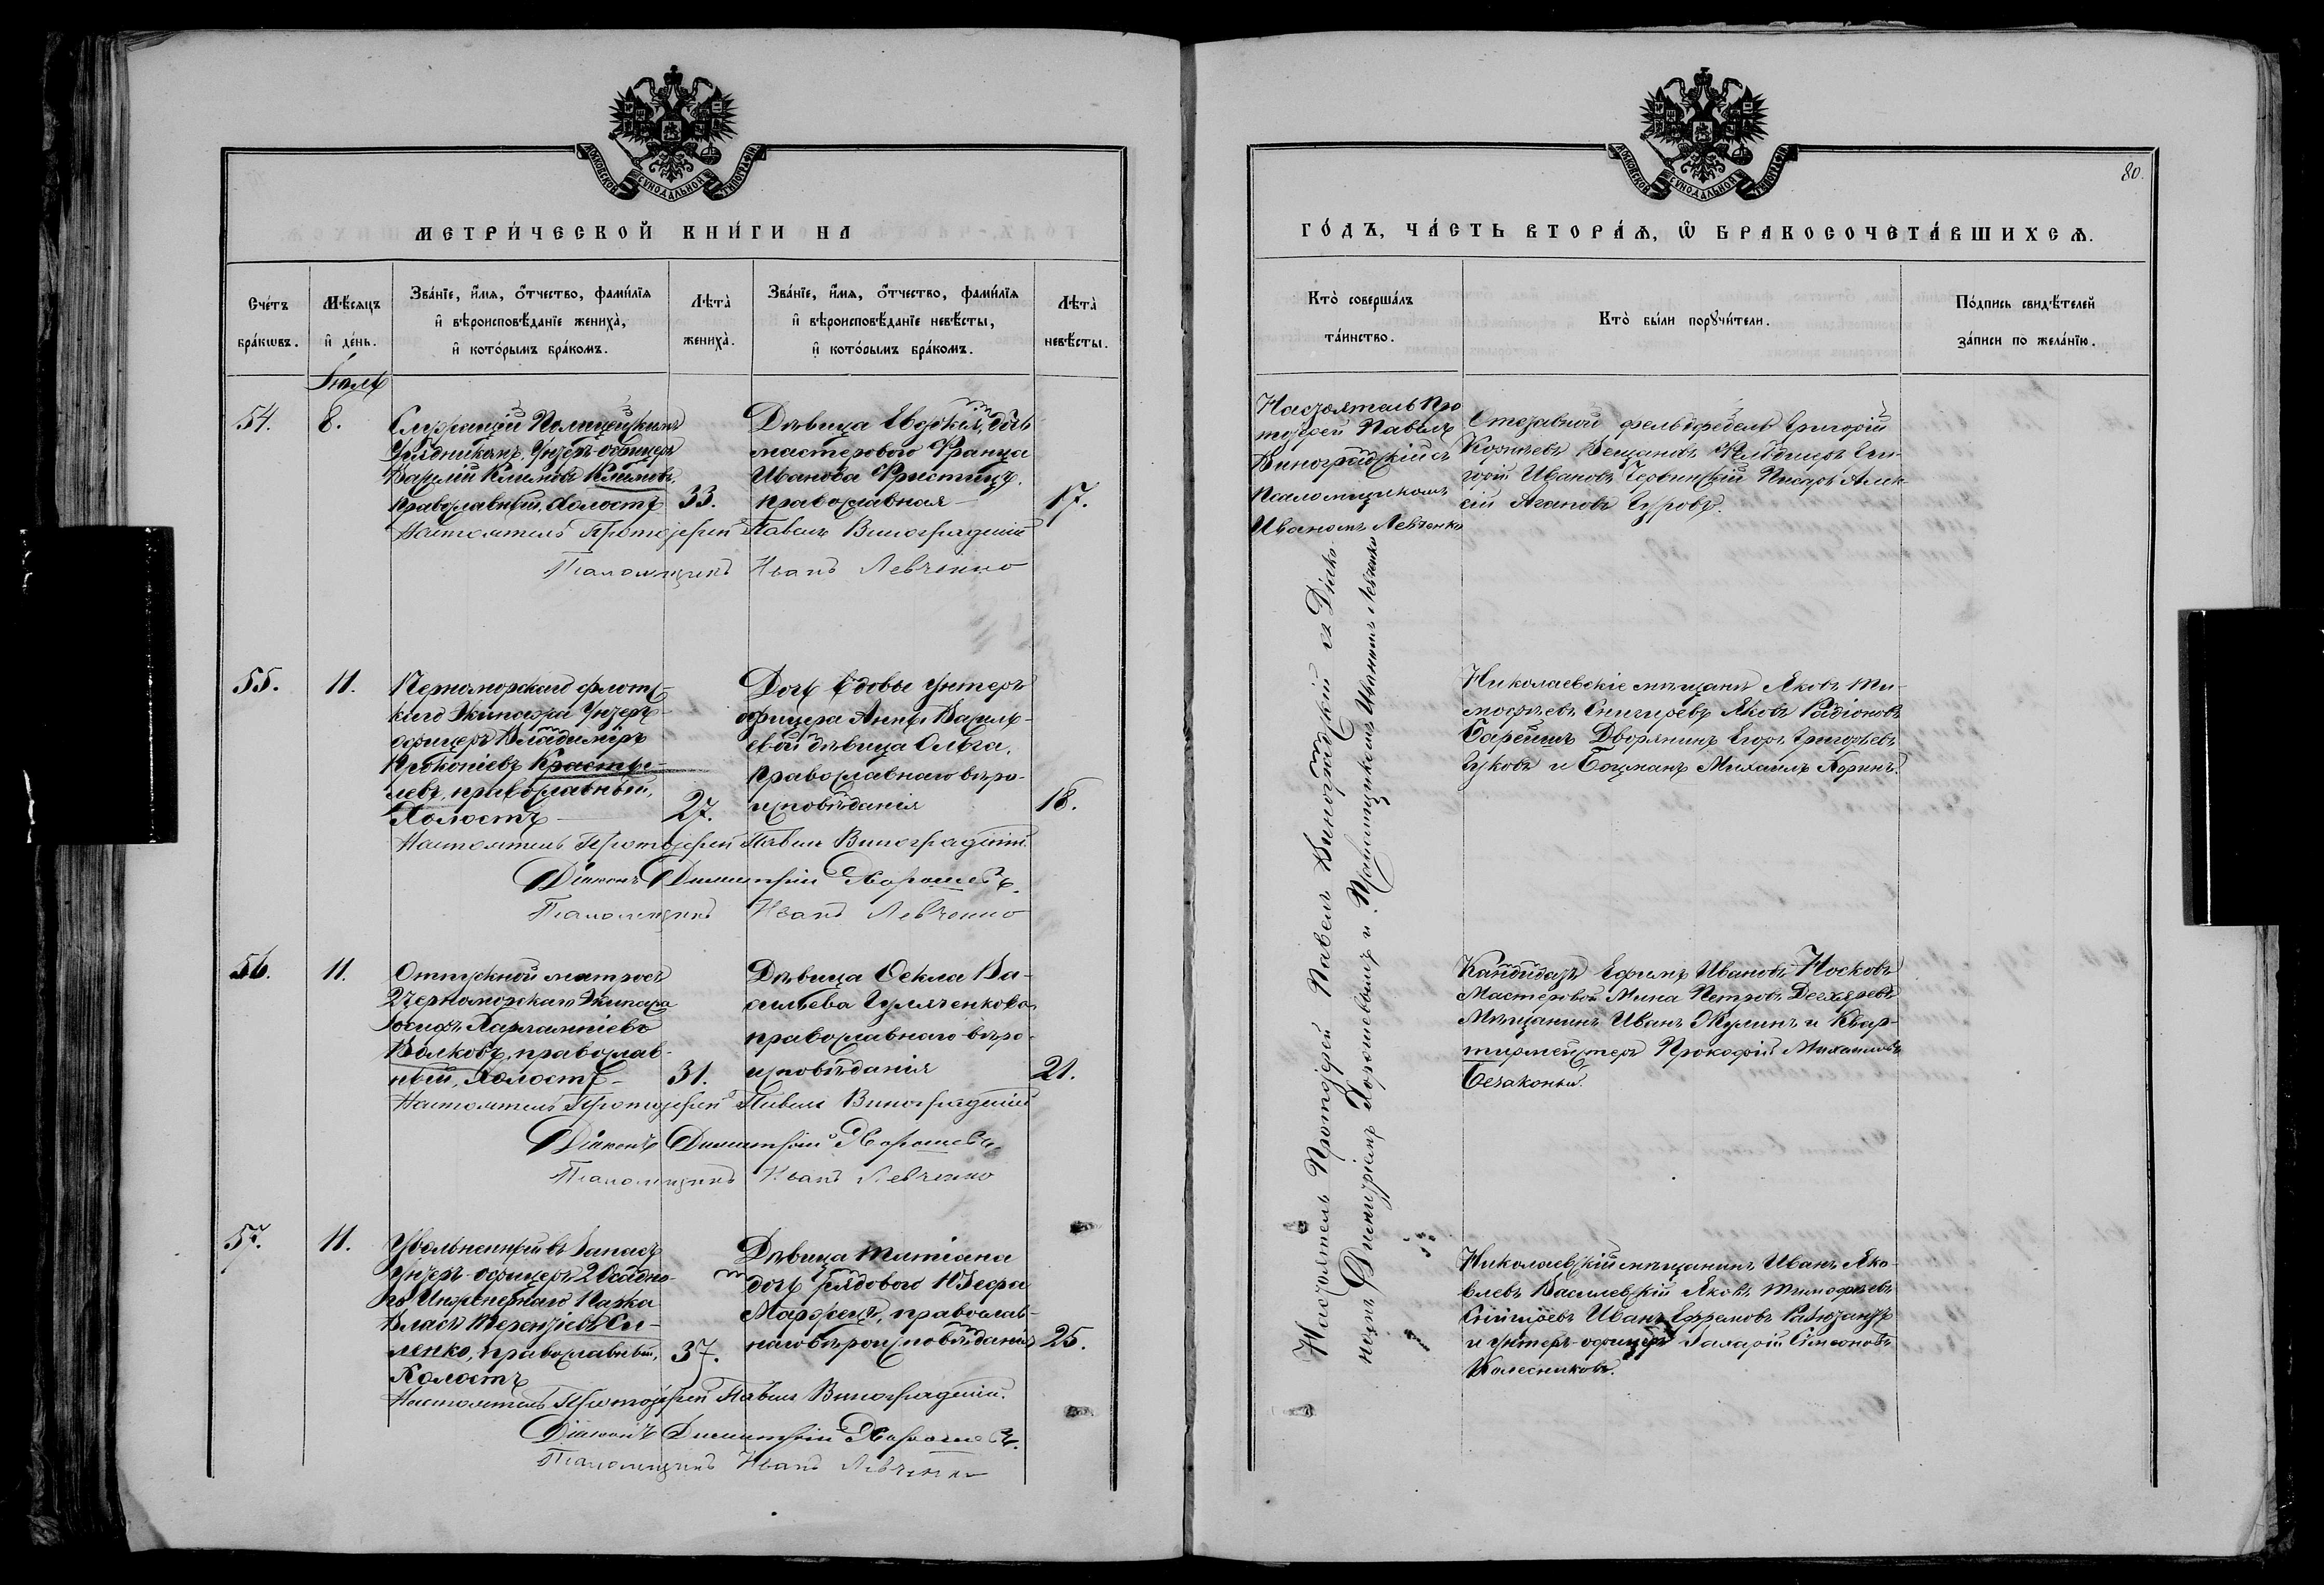 МОСКОВСКОЙ СУНОДАЛЬНОЙ ТИПОГРАФІИ
МЕТРИ́ЧЕСКОЙ КНИ́ГИ НА
Сче́тъ бра́кѡвъ.
Мѣ́сѧцъ и҆ де́нь.
Зва́нїе, и҆́мѧ, ѻ҆́тчество, фами́лїѧ
и҆ вѣроисповѣ́данїе жениха̀,
и҆ кото́рымъ бра́комъ.
Лѣта̀ жениха̀.
Зва́нїе, и҆́мѧ, ѻ҆́тчество, фами́лїѧ
и҆ вѣроисповѣ́данїе невѣ́сты,
и҆ кото́рымъ бра́комъ.
Лѣта̀ невѣ́сты.
Іюль
54.
8.
Служащій Полицейскимъ
Урядникомъ, Унтеръ-офицеръ
Василій Климовъ Климовъ,
православный, холостъ
33.
Дѣвица Евдокія, дочь
мастероваго Франца
Иванова
православная
17.
Настоятель Протоіерей Павелъ Виноградскій
Псаломщикъ Иванъ Левченко
55.
11.
Черноморскаго флотс-
каго Экипажа Унтеръ-
офицеръ Владиміръ
Прокопіевъ
левъ, православный,
Холостъ
27.
Дочь вдовы унтеръ
офицера Анны Василь-
евой дѣвица Ольга,
православнаго вѣро-
исповѣданія
18.
Настоятель Протоіерей Павелъ Виноградскій.
Діаконъ Димитрій Хорошевъ.
Псаломщикъ Иванъ Левченко
56.
11.
Отпускной матросъ
2 Черноморскаго Экипажа
Іосифъ Харлампіевъ
Волковъ, православ-
ный, Холостъ
31.
Дѣвица Ѳекла Ва-
сильева
православнаго вѣро-
исповѣданія
21.
Настоятель Протоіерей Павелъ Виноградскій
Діаконъ Димитрій Хорошевъ
Псаломщикъ Иванъ Левченко
57.
11.
Уволенный въ Запасъ
Унтеръ-офицеръ 2 Осадна-
го Инженернаго Парка
Власъ Терентіевъ Си-
ленко, православный,
Холостъ
37.
Дѣвица Татіана
дочь рядового Іосифа
православ-
наго вѣроисповѣданія
25.
Настоятель Протоіерей Павелъ Виноградскій.
Діаконъ Димитрій Хорошевъ.
Псаломщикъ Иванъ Левченко
МОСКОВСКОЙ СУНОДАЛЬНОЙ ТИПОГРАФІИ
80.
ГО́ДЪ, ЧА́СТЬ ВТОРА́Ѧ, Ѡ҆ БРАКОСОЧЕТА́ВШИХСѦ.
Кто̀ соверша́лъ та́инство.
Кто̀ бы́ли порꙋчи́тели.
По́дпись свидѣ́телей
за́писи по жела́нїю.
Настоятель Про
тоіерей Павелъ
Виноградскій съ
Псаломщикомъ
Иваномъ Левченко
Отставной фельдфебель Григорій
Фельдшеръ Гри-
горій Ивановъ Червинскій Писарь Алек-
сій Агаповъ Гуровъ.
Настоятель Протоіерей Павелъ Виноградскій съ Діако-
номъ Димитріемъ Хорошевымъ и Псаломщикомъ Иваномъ Левченко
Николаевскіе мѣщане Яковъ Ти-
мофѣевъ Снигиревъ Яковъ Радіоновъ
Дворянинъ Егоръ Григорьевъ
Гуковъ и Боцманъ Михаилъ
Кандидатъ Ефимъ Ивановъ Носковъ
Мастеровой Мина Петровъ Дегтяревъ
Мѣщанинъ Иванъ Жулинъ и Квар-
тирмейстеръ Прокофій Михаиловъ
Николаевскій мѣщанинъ Иванъ Яко-
влевъ Василевскій Яковъ Тимофѣевъ
Иванъ Ефремовъ
и унтеръ-офицеръ Симеоновъ
Колесниковъ.